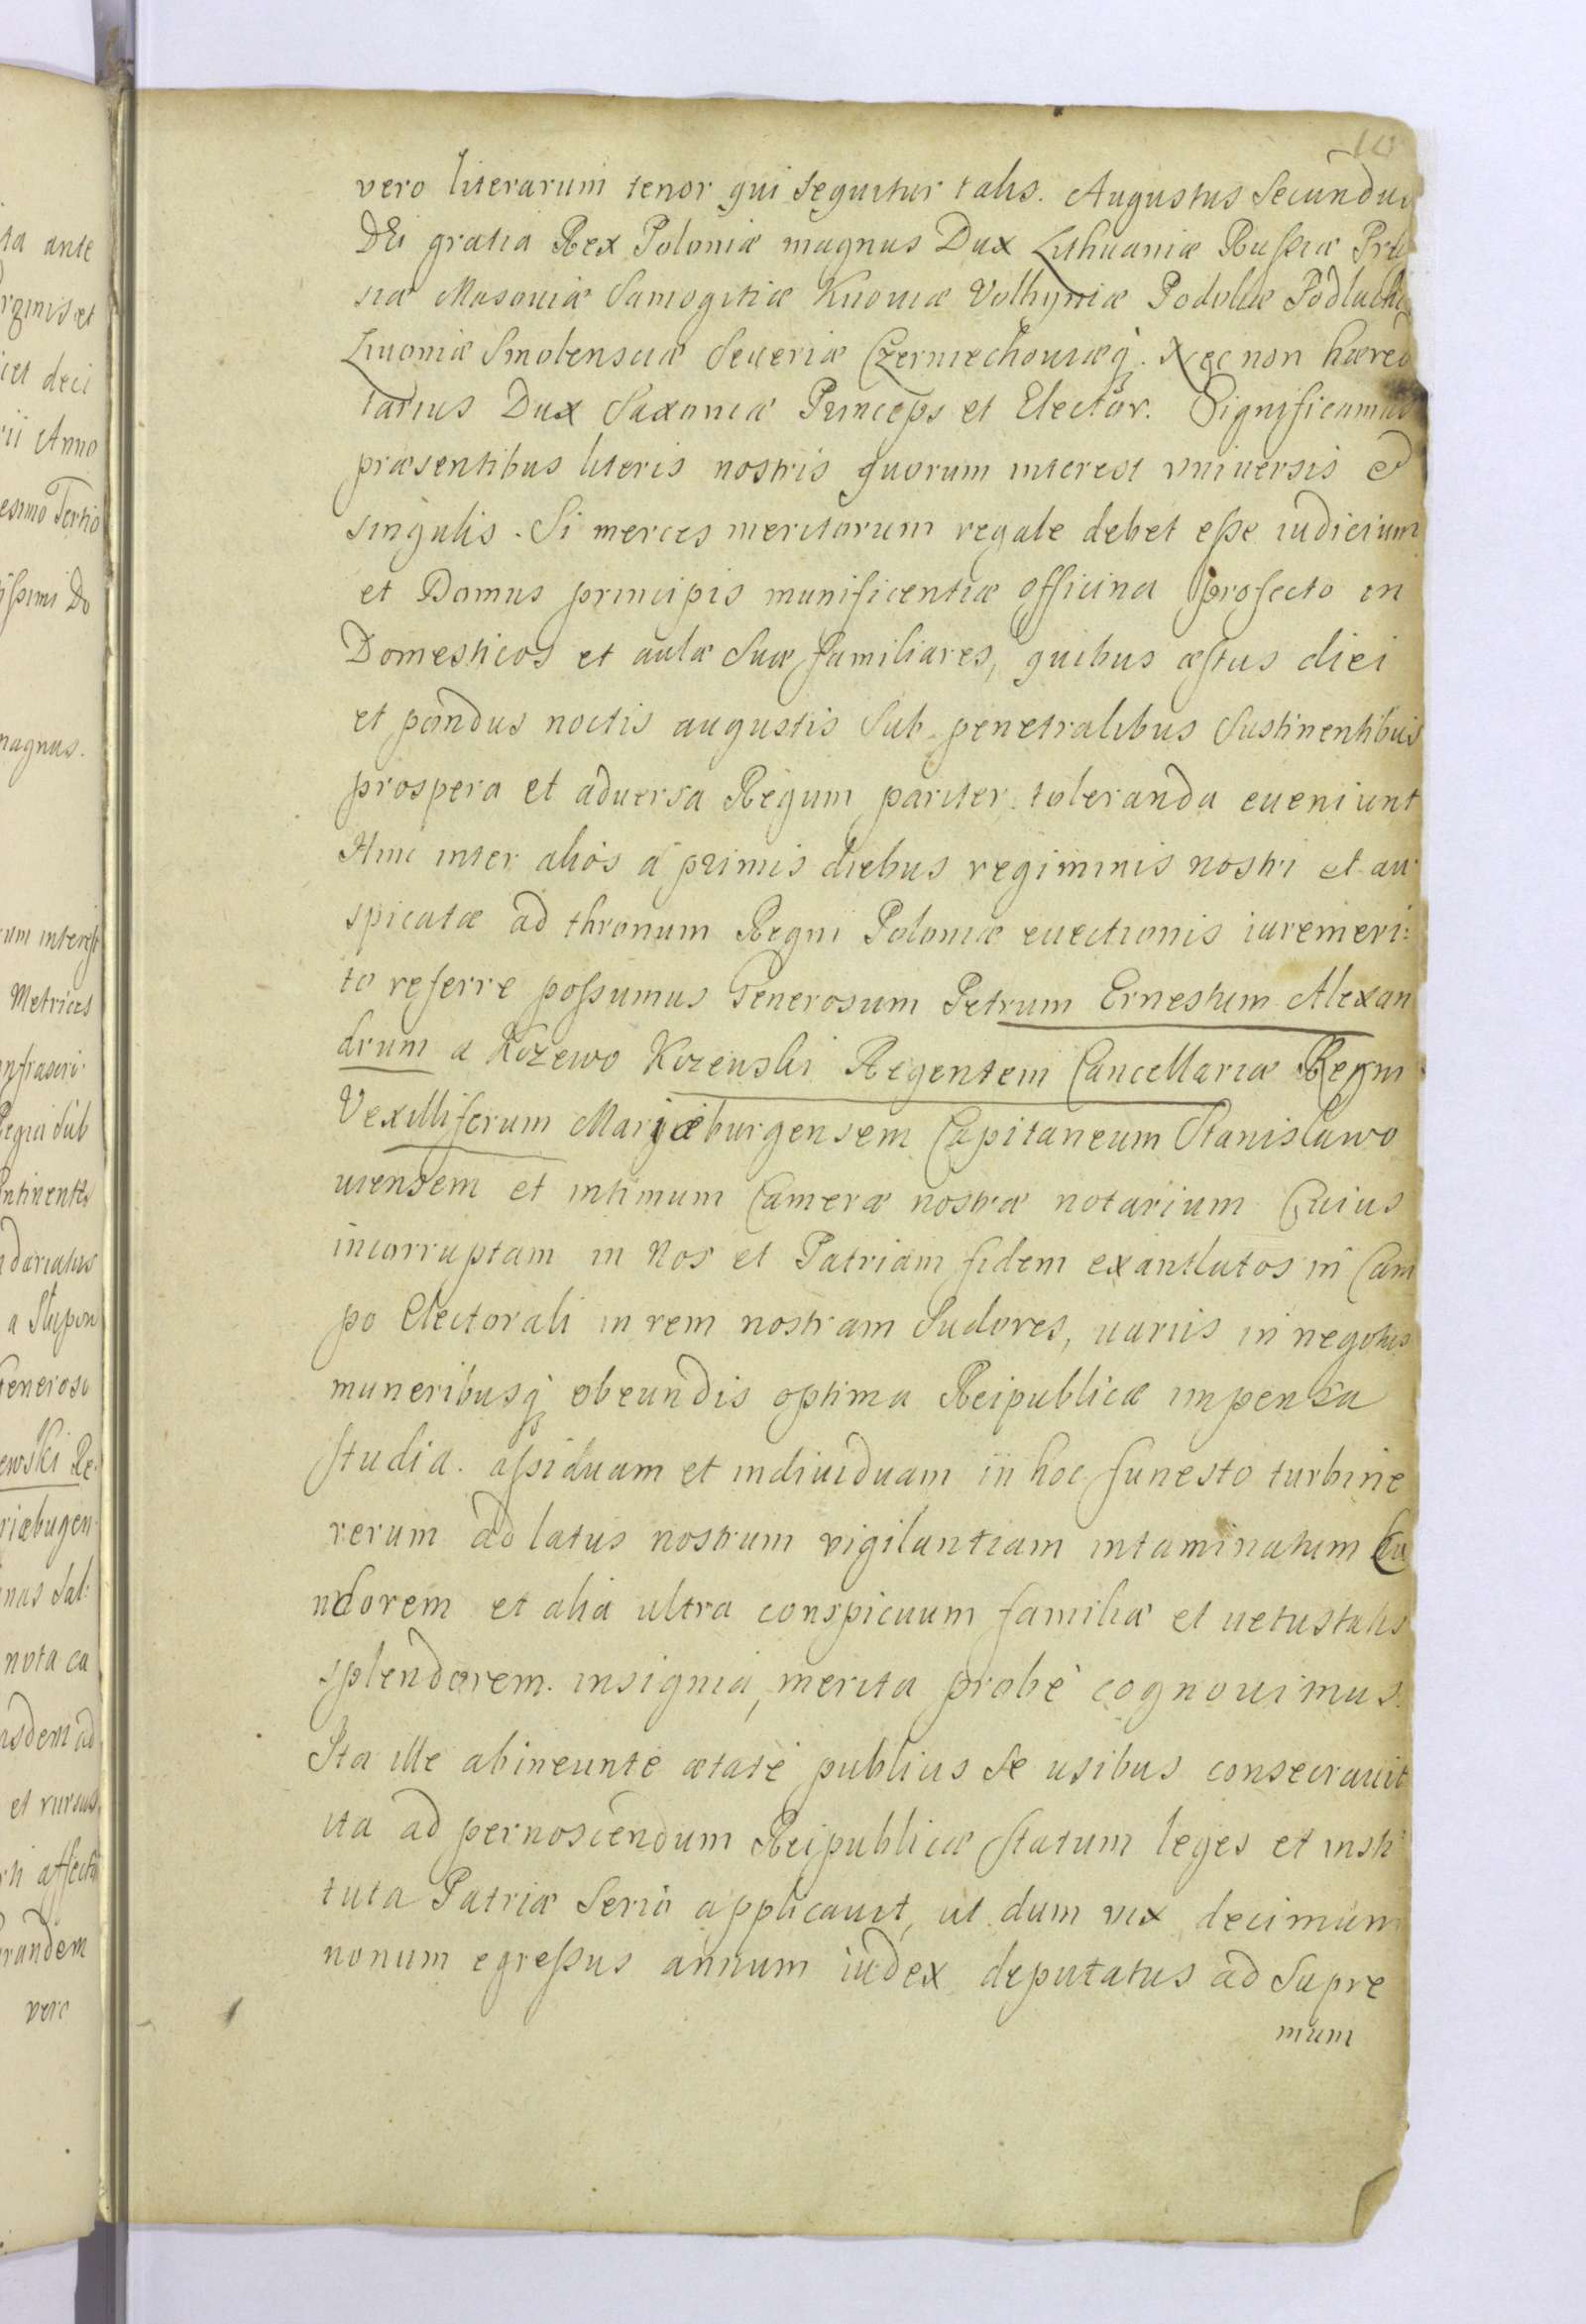 10
vero literarum tenor qui sequitur talis. Augustus Secundus
DEi gratia Rex Poloniæ magnus Dux Lithuaniæ Russiæ Pru
siæ Masouiæ Samogitiæ Kiiouiæ Volhyniæ Podoliæ Podlachi
Liuoniæ Smolensciæ Seueriæ Czerniechouiæq. Nec non hæredi
tarius Dux Saxoniæ Princeps et Elector. Significamus
præsentibus literis nostris quorum interest vniuersis et
singulis. Si merces meritorum regale debet esse iudicium
et Domus principis munificentiæ officina profecto in
Domesticos et aulæ suæ familiares, quibus æstus diei
et pondus noctis augustis sub penetralibus sustinentibus
prospera et aduersa Regum pariter toleranda eueniunt
Hinc inter aliós á primis diebus regiminis nostri et au
spicatæ ad thronum Regni Poloniæ euectionis iuremeri:
to referre possumus Generosum Petrum Ernestum Alexan
drum a Kczewo Kczenski Regentem Cancellariæ Regni
Vexilliferum Mariæburgensem Capitaneum Stanislawo
uiensem et intimum Cameræ nostræ notarium Cuius
incorruptam in Nos et Patriam fidem exantlatos in Cam
po Electorali in rem nostram Sudores, uariis in negotiis
muneribusq obeundis optima Reipublicæ impensa
studia. assiduam et indiuiduam in hoc funesto turbine
rerum ad latus nostrum vigilantiam intaminatum Ca
ndorem et alia ultra conspicuum familiæ et uetustatis
splendorem. insignia, merita probè cognouimus.
Ita ille abineunte ætate publicis se usibus consecrauit
ita ad pernoscendum Reipublicæ statum leges et insti
tuta Patriæ serio applicauit, ut dum vix decimum
nonum egressus annum iudex deputatus ad Supre
mum